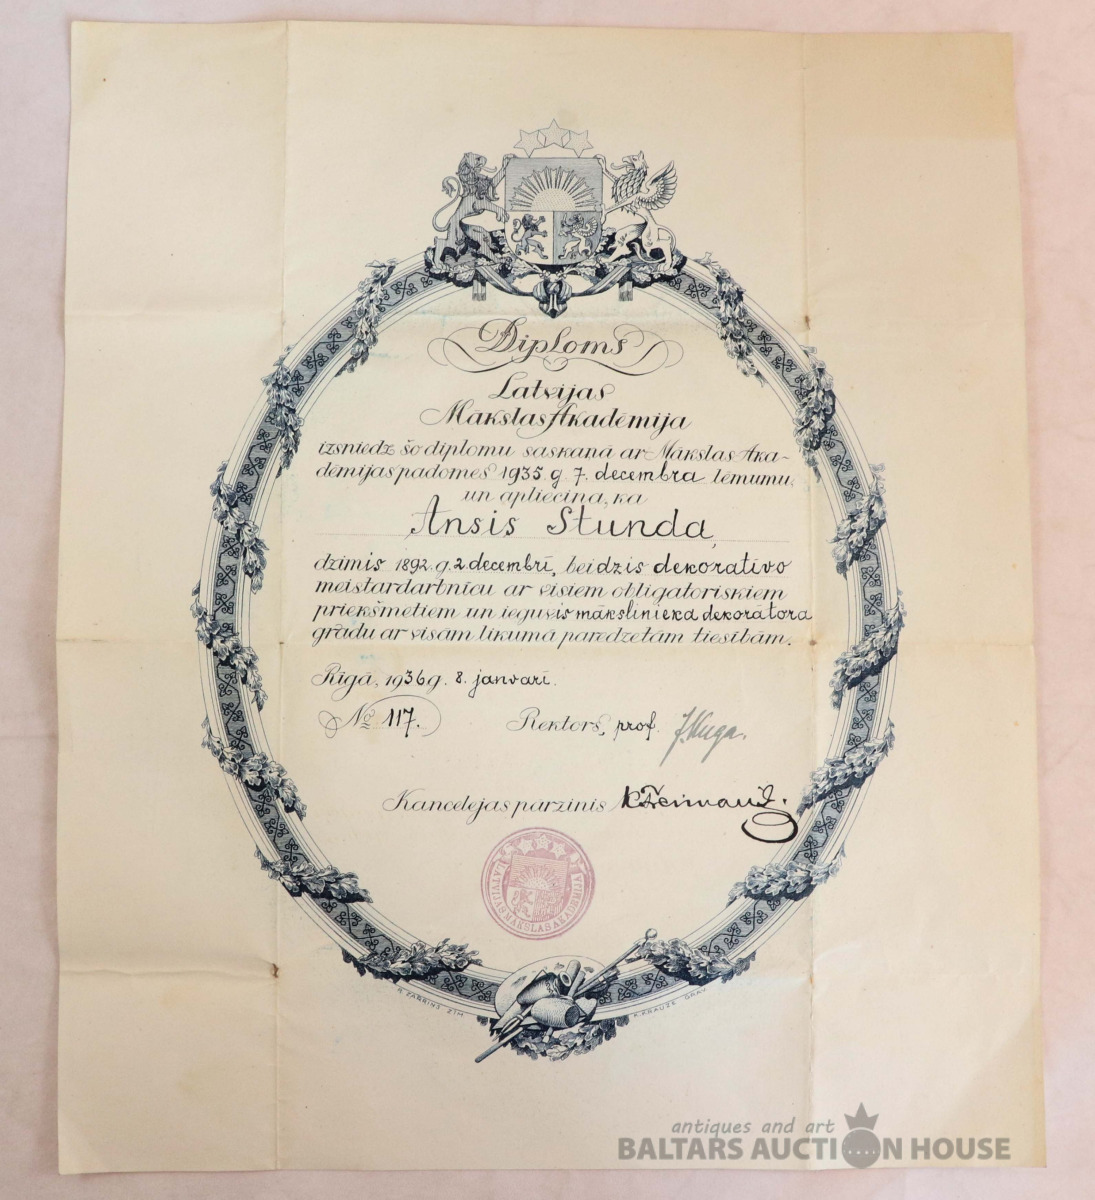 Diploms
Latvijas
Mākslas Akadēmija
izsniedz šo diplomu saskaņā ar Mākslas Aka-
dēmijas padomes 1935. g. 7. decembra lēmumu,
un apliecina, ka
Ansis Stunda,
dzimis 1892. g. 2. decembrī, beidzis dekoratīvo
meistardarbnīcu ar visiem obligatoriskiem
priekšmetiem un ieguvis mākslinieka dekorātora
grādu ar visām likumā paredzētām tiesībām.
Rīgā, 1936 g. 8. janvarī.
No 117.
Rektors, prof. J. Kuga.
Kancelejas pārzinis
LATVIJAS MĀKSLAS AKADEMIJA
R. ZARRIŅŠ ZIM.
K. KRAUZE GRAV.
antiques and art
BALTARS AUCTION HOUSE